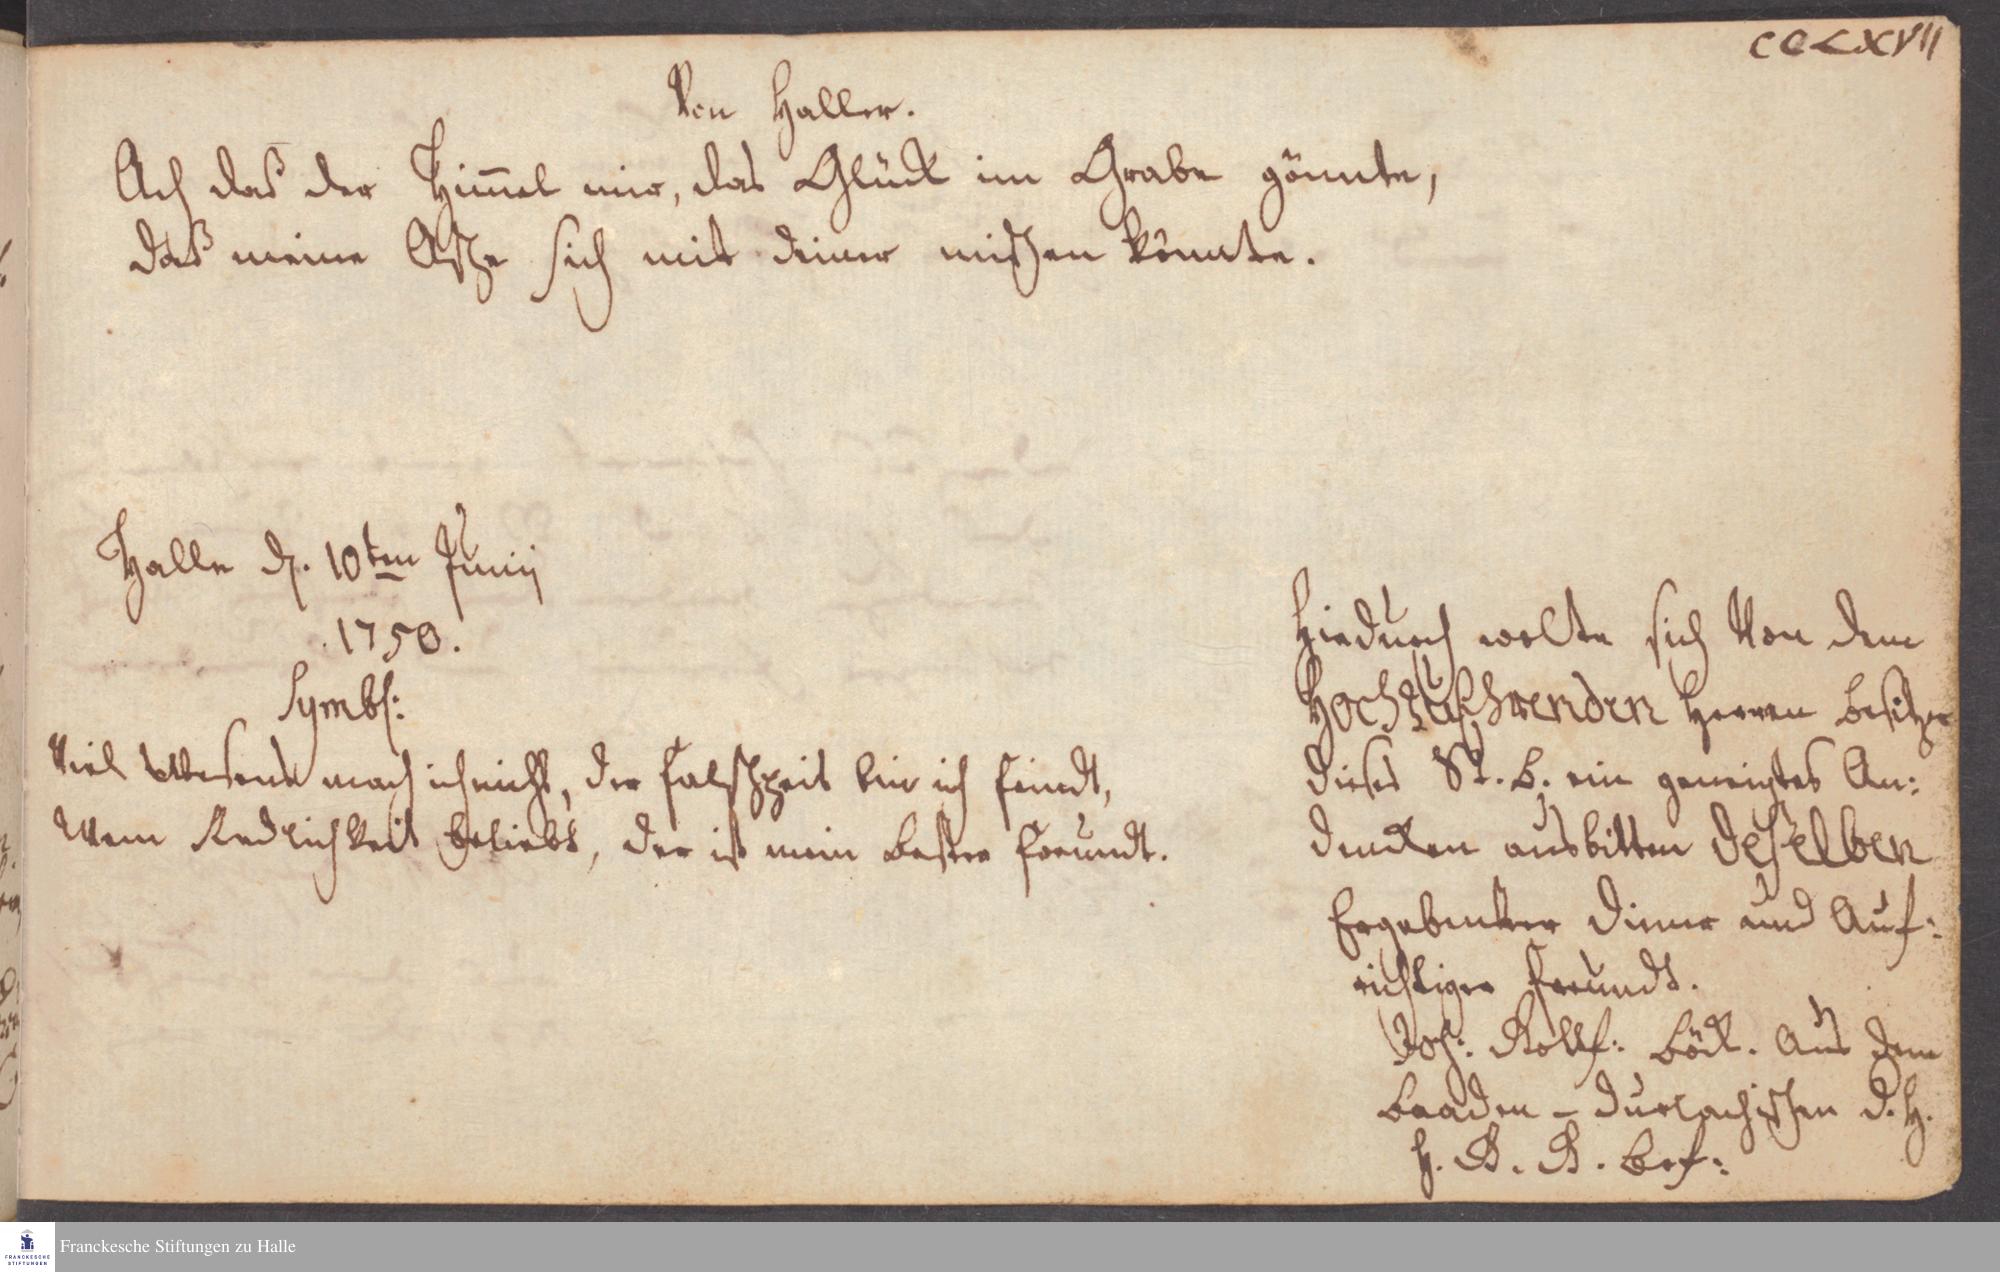 CCLXVII
Von Haller.
Ach daß der Him̄el mir, das Glück im Grabe gönnte,
daß meine Asche sich mit deiner mischen könnte.
Halle d. 10ten Junij
1750.
Symbl:
Viel Wesens mach ich nicht, der Falschheit bin ich feindt,
Wem Redlichkeit beliebt, der ist mein bester freundt.
Hiedurch wolte sich Von dem
HochzuEhrenden Herren besitzer
dieses St. B. ein geneigtes An:
dencken ausbitten deßelben
Ergebenster Diener und Auf:
richtiger freundt.
Joh: Böck. Aus dem
Baaden-Durlachischen d. H.
H. R. R. Bef:
Franckesche Stiftungen zu Halle
FRANCKESCHE
STIFTUNGEN